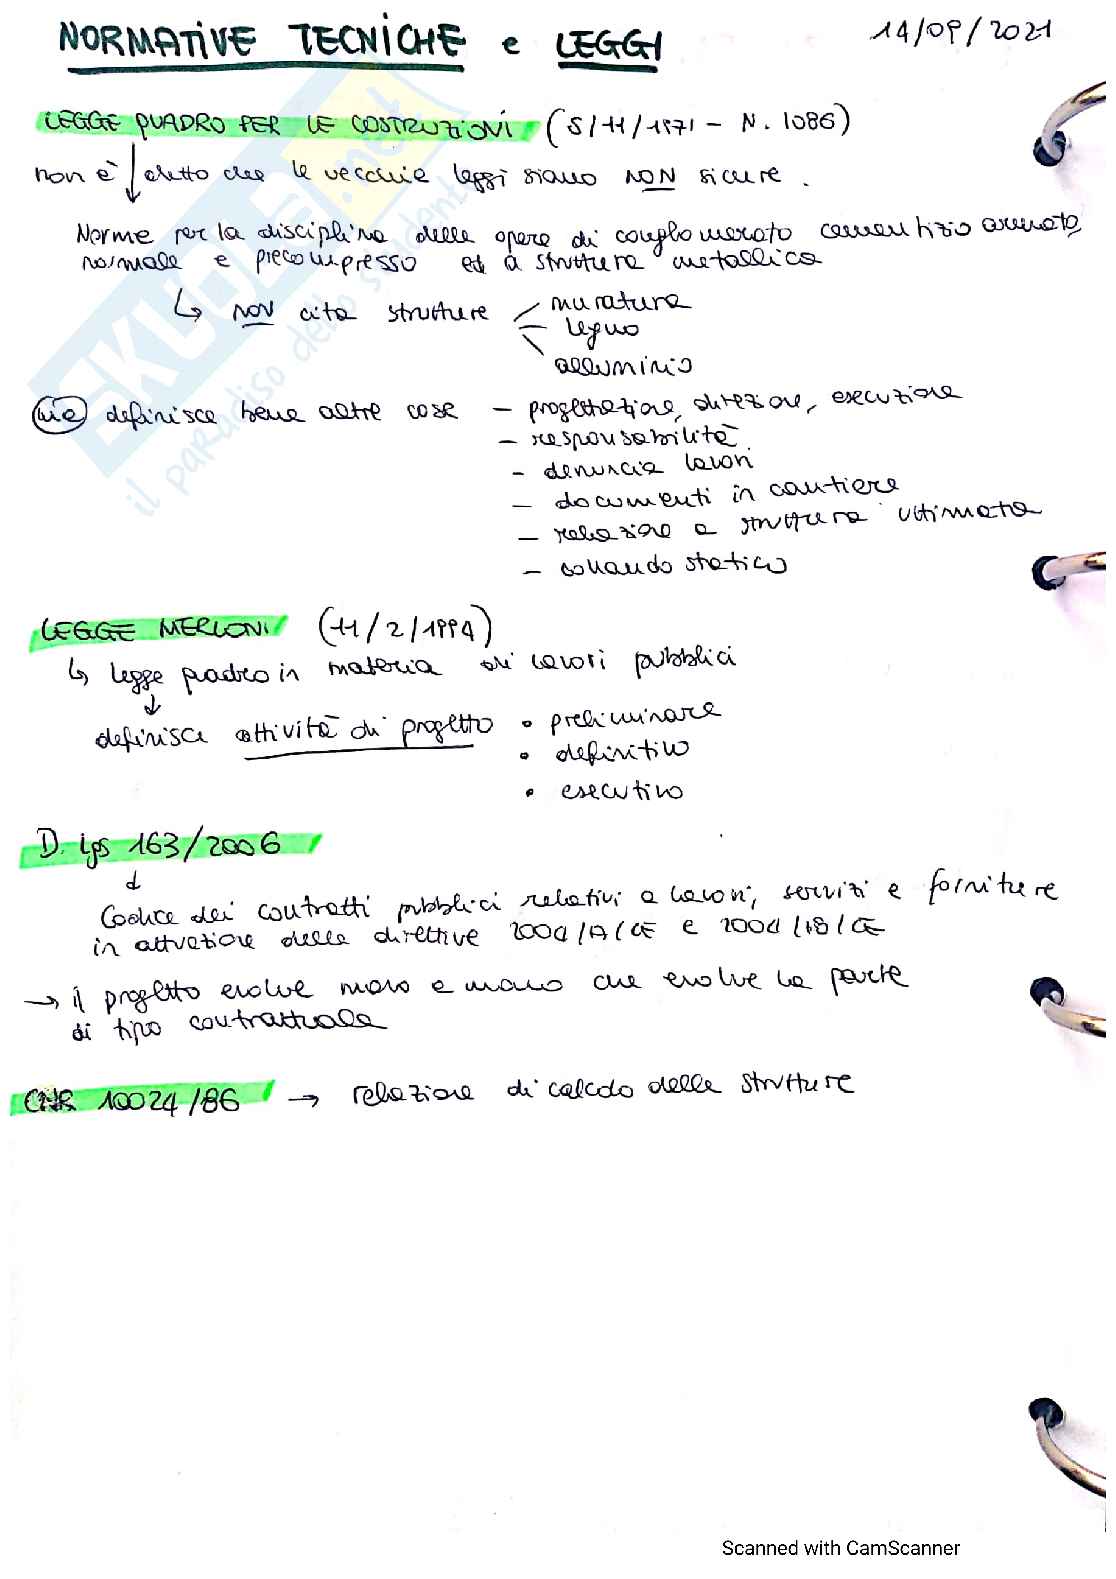 NORMATIVE TECNICHE e LEGGI 14/09/2021
LEGGE QUADRO PER LE COSTRUZIONI (5/11/1971 - N. 1086)
non è detto che le vecchie leggi siano NON sicure.
Norme per la disciplina delle opere di conglomerato cementizio armato,
normale e precompresso ed a struttura metallica
↳ NON cita strutture muratura
legno
alluminio
definisce bene altre cose - progettazione, direzione, esecuzione
- responsabilità
- denuncia lavori
- documenti in cantiere
- relazione a struttura ultimata
- collaudo statico
LEGGE MERLONI (11/2/1994)
↳ legge quadro in materia di lavori pubblici
definisce attività di progetto • preliminare
• definitivo
• esecutivo
D. lgs 163/2006
Codice dei contratti pubblici relativi a lavori, servizi e forniture
in attuazione delle direttive 2004/17/CE e 2004/18/CE
→ il progetto evolve mano e mano che evolve la parte
di tipo contrattuale
CNR 10024/86 → relazione di calcolo delle strutture
SKUOLA.net
il paradiso dello studente
Scanned with CamScanner